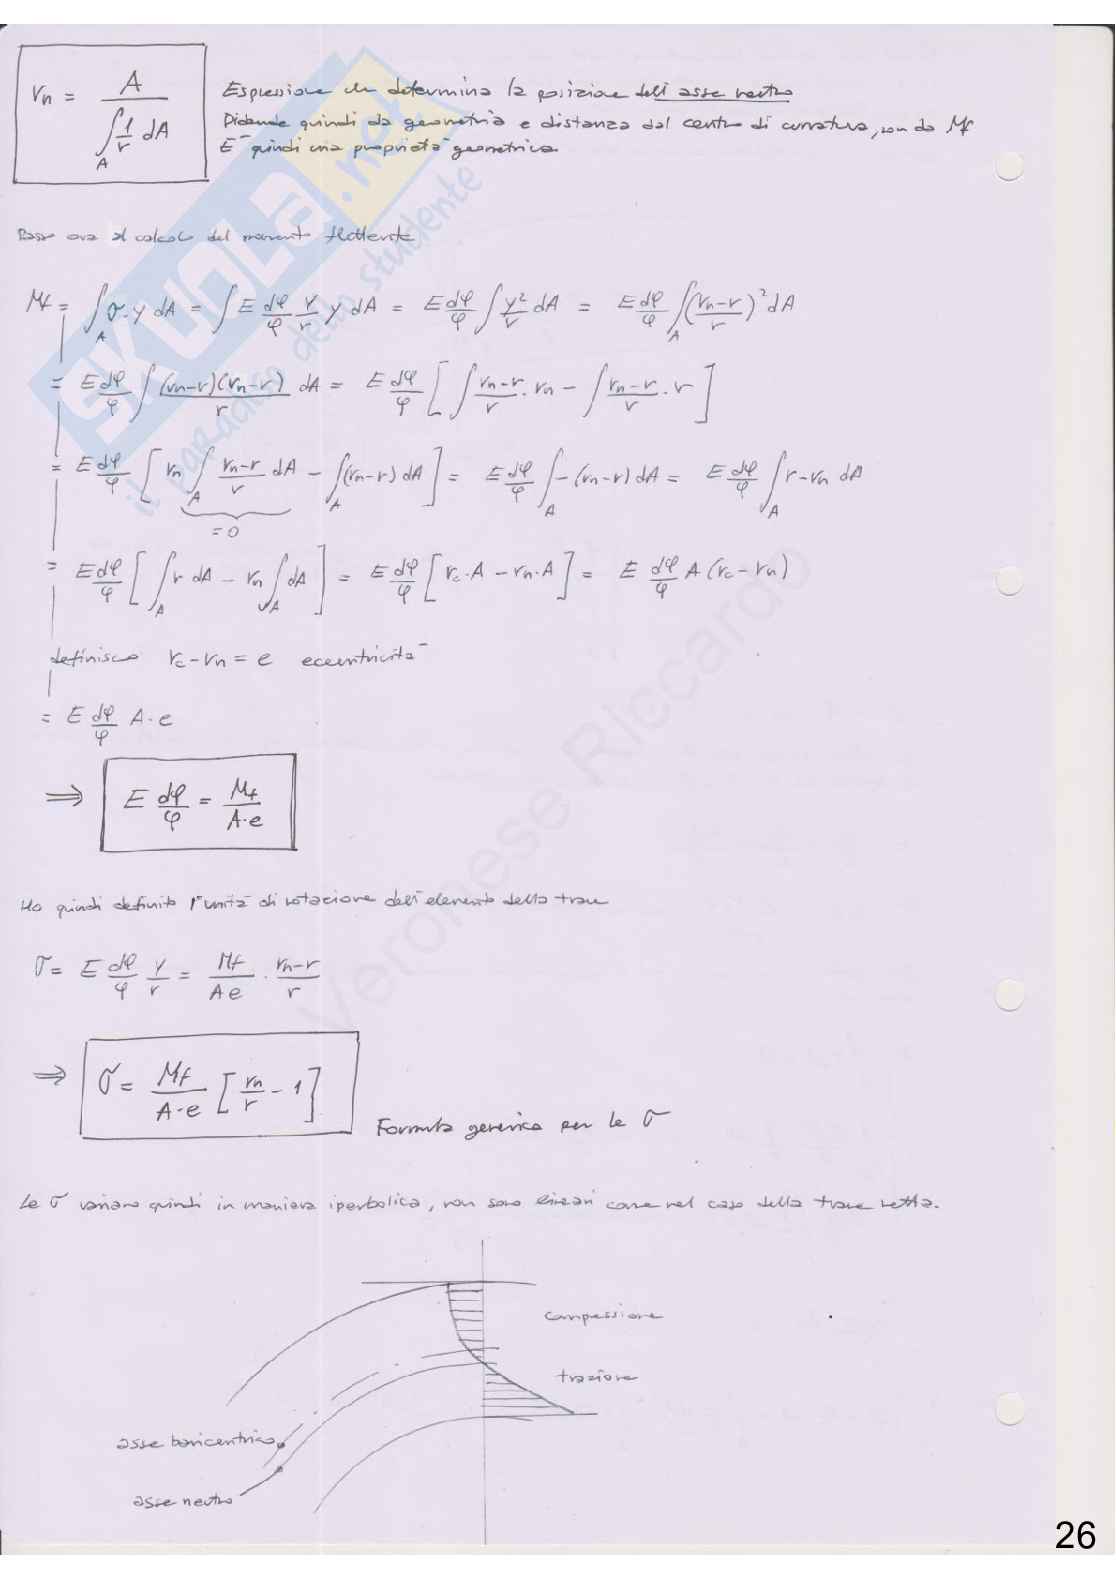 rn = A / ∫_A 1/r dA
Espressione che determina la posizione dell'asse neutro
Dipende quindi da geometria e distanza dal centro di curvatura, non da Mf
E' quindi una proprietà geometrica.
Passo ora al calcolo del momento flettente
Mf = ∫_A σ·y dA = ∫ E dφ/φ y/r y dA = E dφ/φ ∫ y²/r dA = E dφ/φ ∫_A (rn-r)²/r dA
= E dφ/φ ∫ (rn-r)(rn-r)/r dA = E dφ/φ [ ∫ rn-r/r · rn - ∫ rn-r/r · r ]
= E dφ/φ [ rn ∫_A rn-r/r dA - ∫_A (rn-r) dA ] = E dφ/φ ∫_A -(rn-r) dA = E dφ/φ ∫_A r-rn dA
= 0
= E dφ/φ [ ∫_A r dA - rn ∫_A dA ] = E dφ/φ [ rc·A - rn·A ] = E dφ/φ A (rc-rn)
definisco rc-rn = e eccentricità
= E dφ/φ A·e
⇒ E dφ/φ = Mf / A·e
Ho quindi definito l'unità di rotazione dell'elemento della trave
σ = E dφ/φ y/r = Mf / A e · rn-r / r
⇒ σ = Mf / A·e [ rn/r - 1 ]
Formula generica per le σ
Le σ variano quindi in maniera iperbolica, non sono lineari come nel caso della trave retta.
compressione
trazione
asse baricentrico
asse neutro
SKUOLA.net
il paradiso dello studente
Veronese Riccardo
26